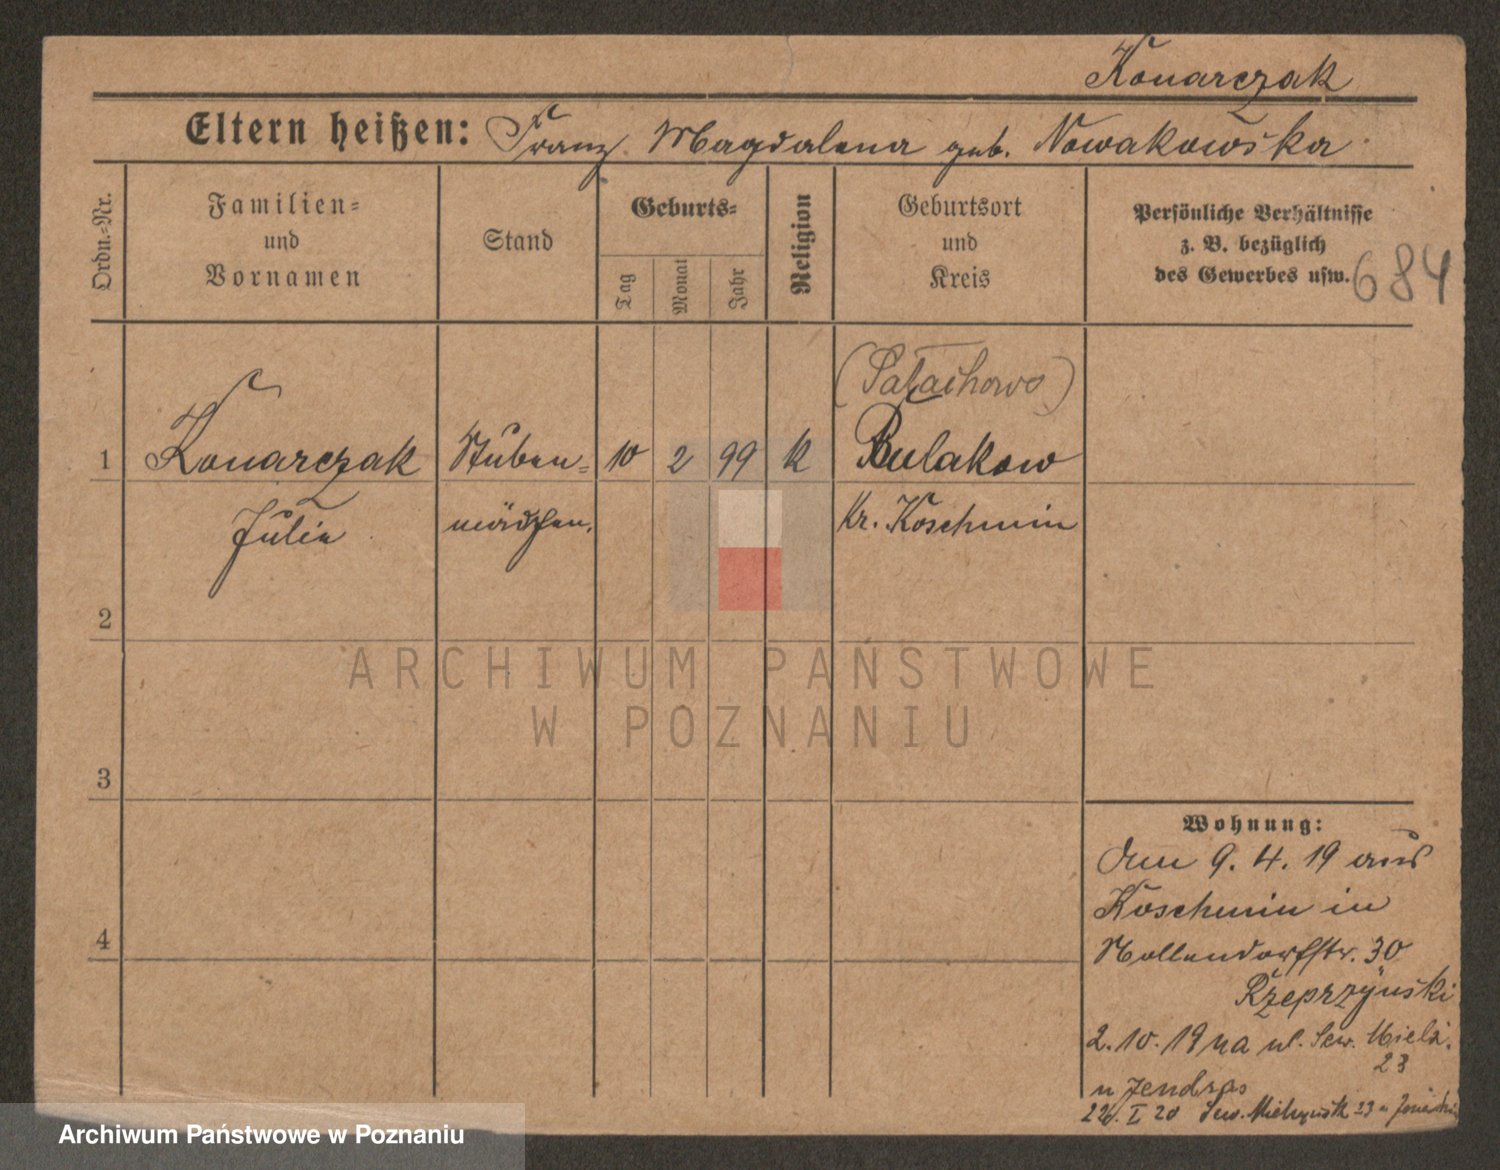 Konarczak
Eltern heißen: Franz Magdalena geb. Nowakowska
Ordn.-Nr.
Familien-
und
Vornamen
Stand
Geburts-
Tag
Monat
Jahr
Religion
Geburtsort
und
Kreis
Persönliche Verhältnisse
z. B. bezüglich
des Gewerbes usw.
684
1
Konarczak
Julie
Stuben-
mädchen.
10 2 99 k
(Pałachowo)
Bulakow
Kr. Koschmin
2
3
4
ARCHIWUM PAŃSTWOWE
W POZNANIU
Wohnung:
Am 9. 4. 19 aus
Koschmin in
Nollendorfstr. 30
Rzeprzyński
2. 10. 19 na ul. Sew. Mielż.
23
u Jendras
I 20 Sew. 23 u
Archiwum Państwowe w Poznaniu